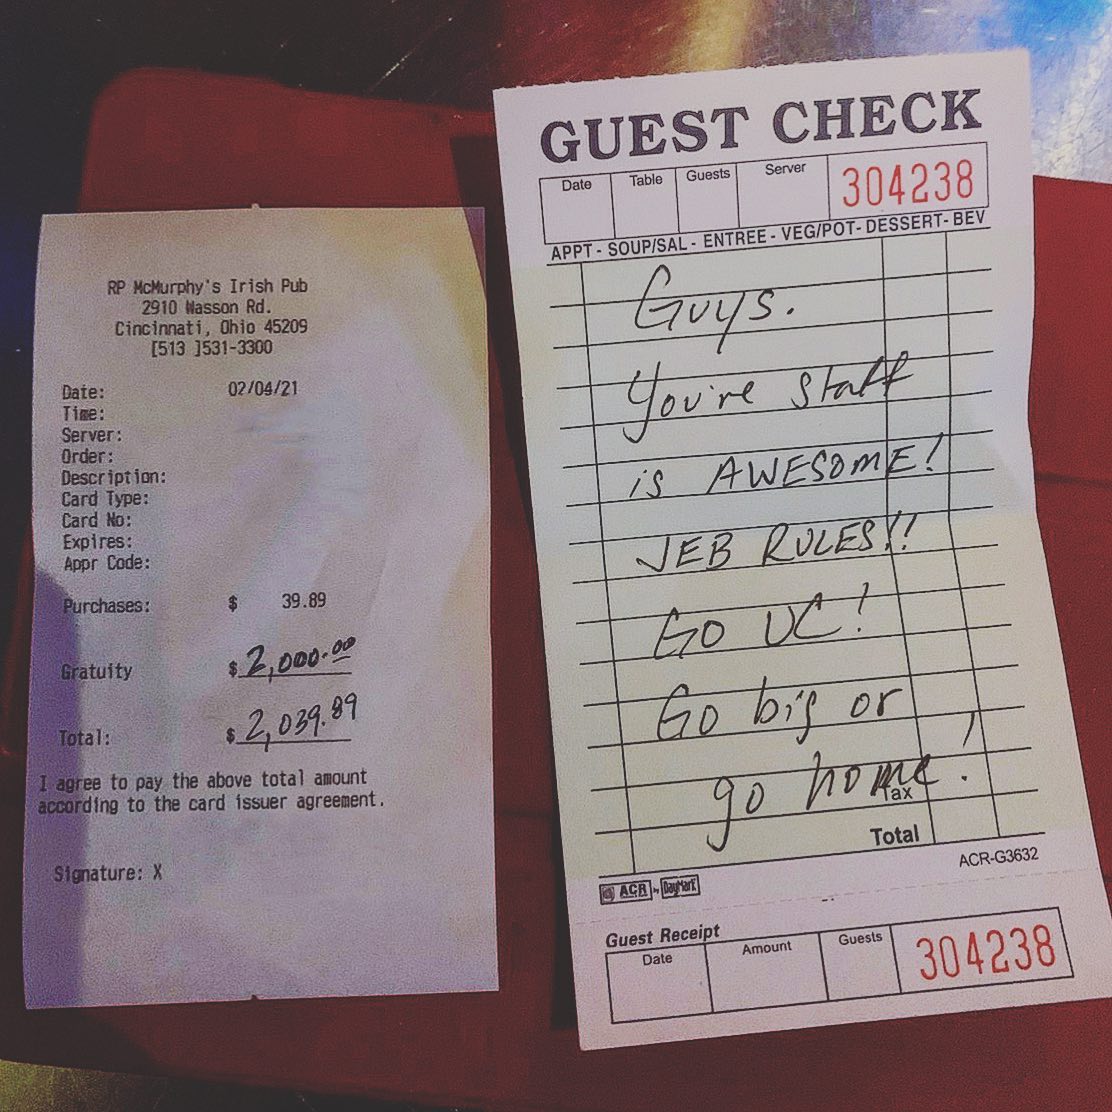 RP McMurphy's Irish Pub
2910 Wasson Rd.
Cincinnati, Ohio 45209
[513 ]531-3300
Date: 02/04/21
Time:
Server:
Order:
Description:
Card Type:
Card No:
Expires:
Appr Code:
Purchases: $ 39.89
Gratuity $ 2,000.00
Total: $ 2,039.89
I agree to pay the above total amount
according to the card issuer agreement.
Signature: X
GUEST CHECK
Date Table Guests Server 304238
APPT - SOUP/SAL - ENTREE - VEG/POT- DESSERT- BEV
Guys.
You're staff
is AWESOME!
JEB RULES!!
Go UC!
Go big or
go home!
Tax
Total
ACR-G3632
ACR by DayMark
Guest Receipt
Date Amount Guests 304238